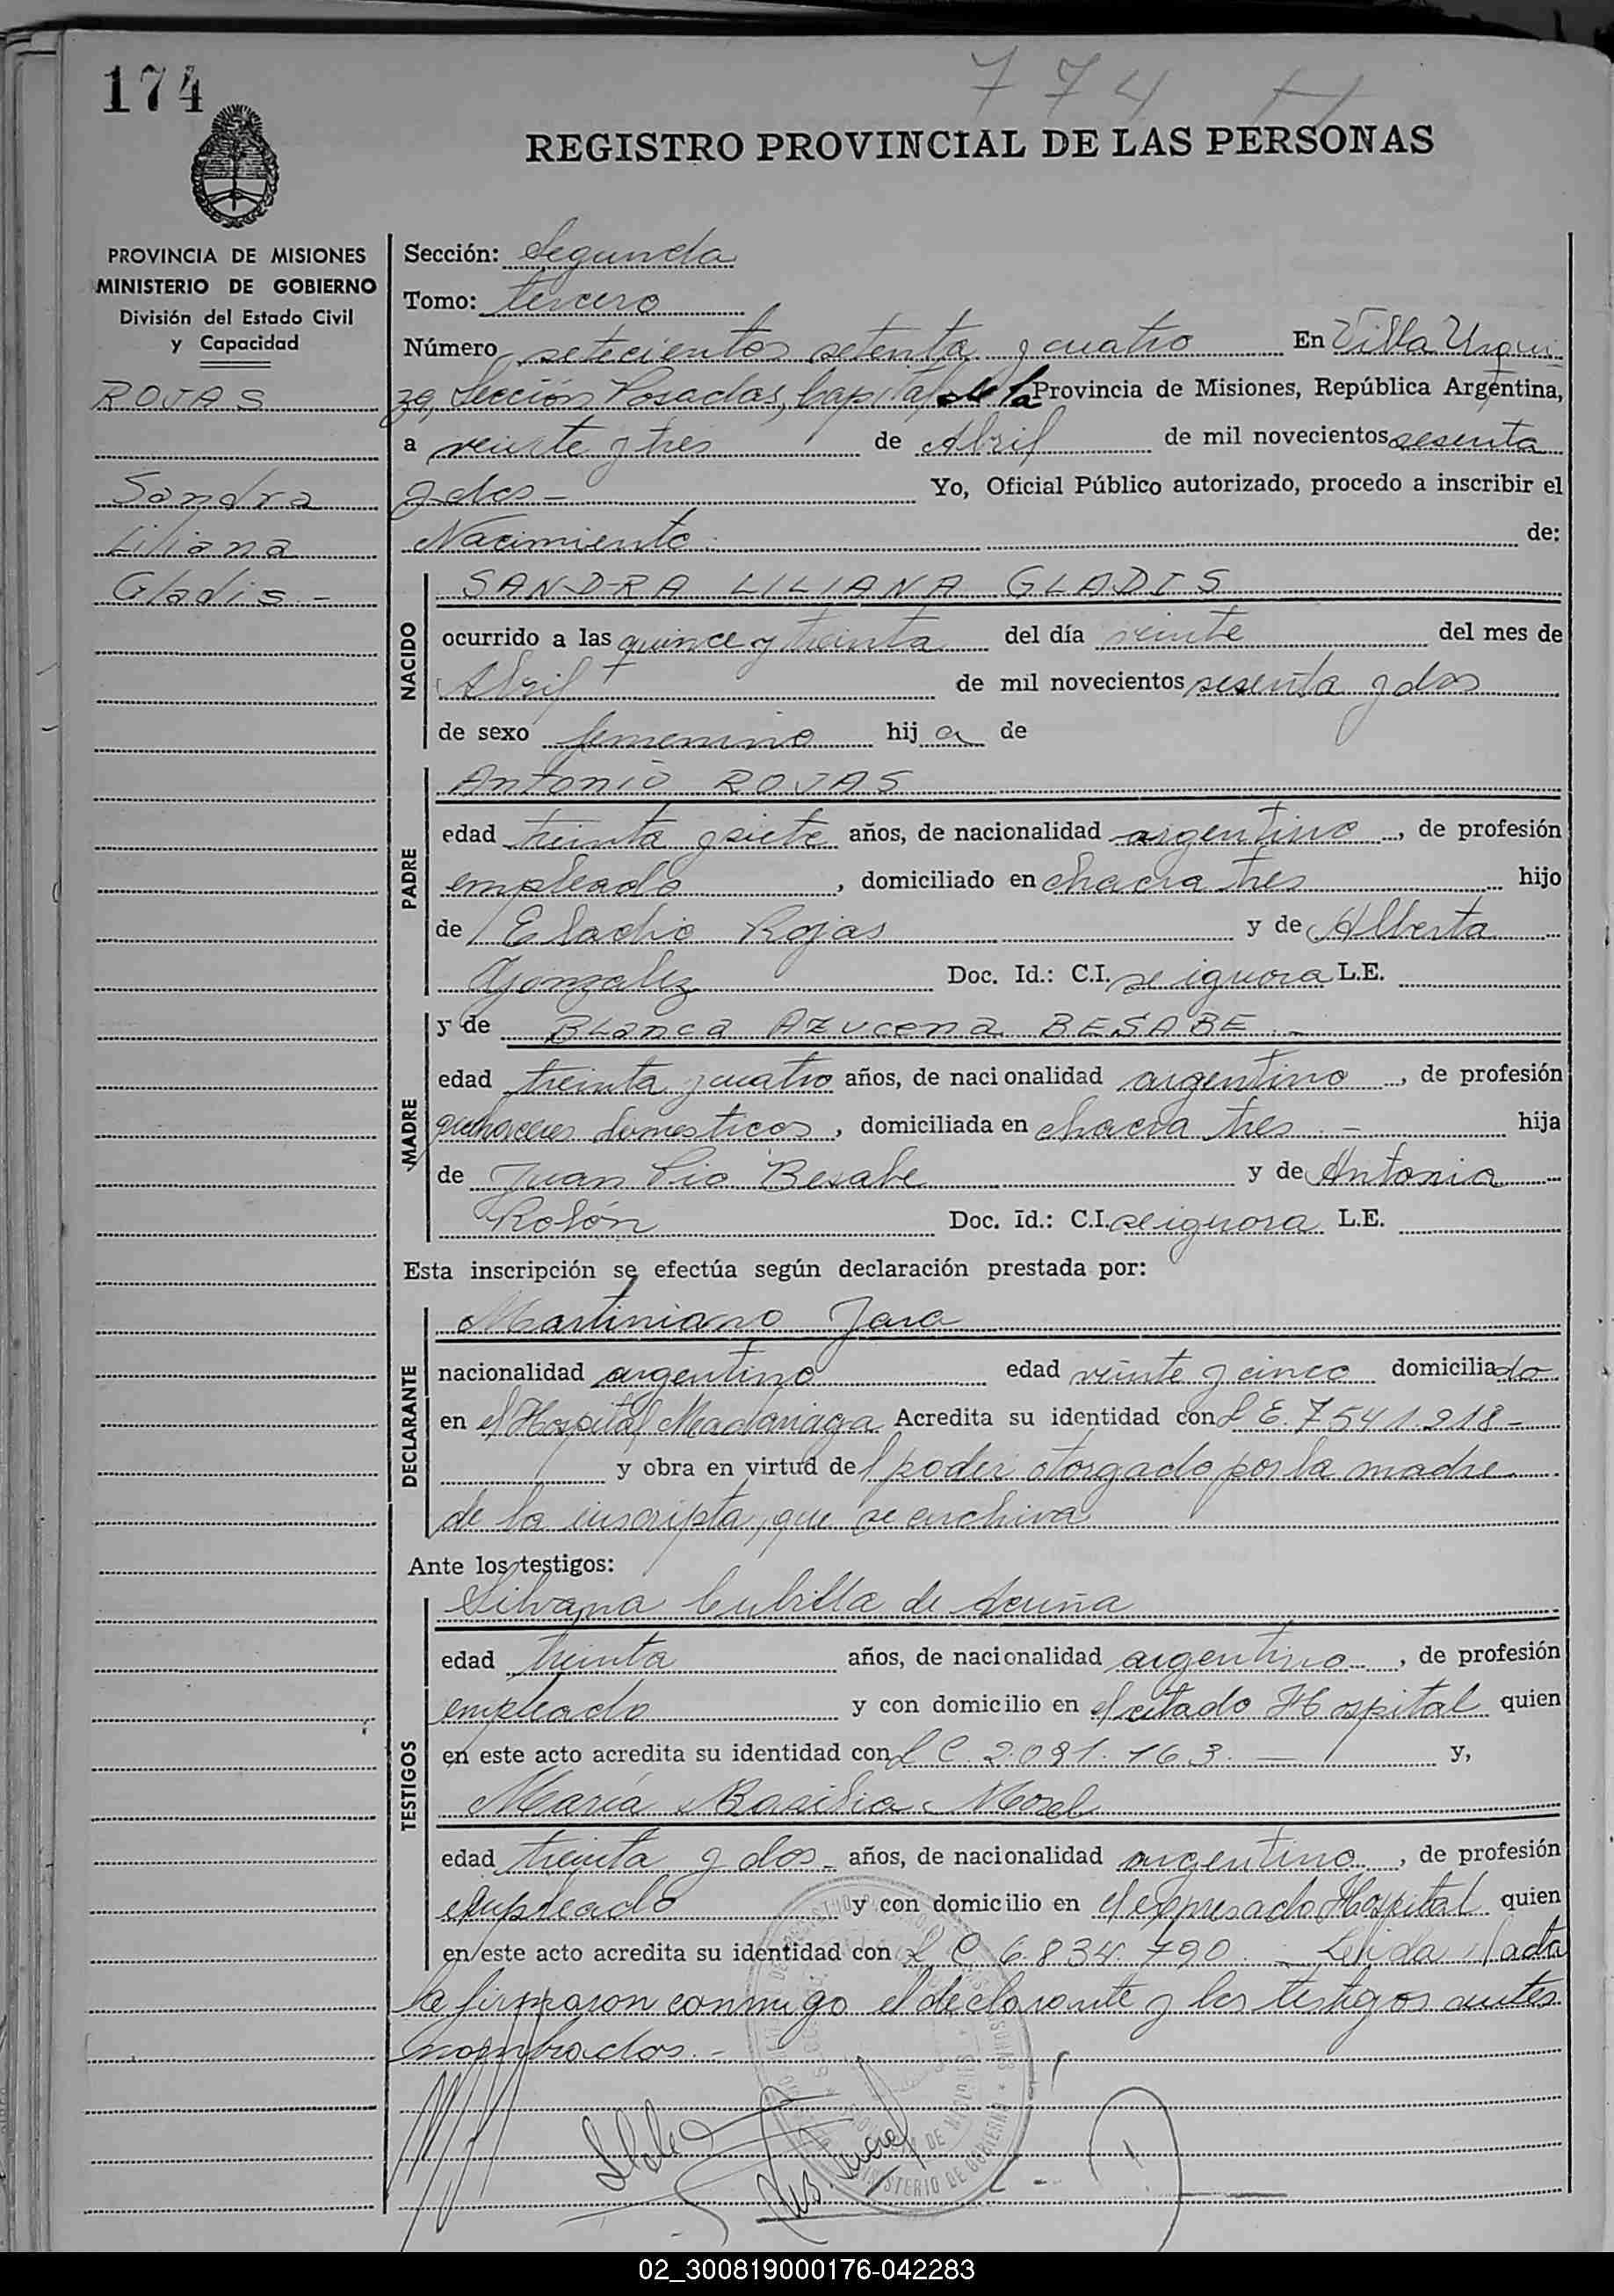 174
774
REGISTRO PROVINCIAL DE LAS PERSONAS
PROVINCIA DE MISIONES
MINISTERIO DE GOBIERNO
División del Estado Civil
y Capacidad
ROJAS
Sandra
Liliana
Gladis -
Sección: Segunda
Tomo: tercero
Número setecientos setenta y cuatro En Villa Urqui
za, Sección Posadas, Capital de la Provincia de Misiones, República Argentina,
a veinte y tres de Abril de mil novecientos sesenta
y dos - Yo, Oficial Público autorizado, procedo a inscribir el
Nacimiento de:
NACIDO
SANDRA LILIANA GLADIS
ocurrido a las quince y treinta del día veinte del mes de
Abril de mil novecientos sesenta y dos
de sexo femenino hij a de
PADRE
Antonio ROJAS
edad treinta y siete años, de nacionalidad argentino, de profesión
empleado, domiciliado en chacra tres hijo
de Eladio Rojas y de Alberta
Gonzalez Doc. Id.: C.I. se ignora L.E.
MADRE
y de Blanca Azucena BESABE -
edad treinta y cuatro años, de nacionalidad argentino, de profesión
quehaceres domesticos, domiciliada en chacra tres - hija
de Juan Pio Besabe y de Antonia
Rolón Doc. Id.: C.I. se ignora L.E.
Esta inscripción se efectúa según declaración prestada por:
DECLARANTE
Martiniano Jara
nacionalidad argentino edad veinte y cinco domiciliado
en el Hospital Madariaga Acredita su identidad con L E. 7541.218 -
y obra en virtud del poder otorgado por la madre
de la inscripta, que se archiva
Ante los testigos:
TESTIGOS
Silvana Cubilla de Acuña
edad treinta años, de nacionalidad argentino, de profesión
empleado y con domicilio en el citado Hospital quien
en este acto acredita su identidad con L C. 2.091.163. - y,
María Basilia Morel
edad treinta y dos - años, de nacionalidad argentino, de profesión
empleado y con domicilio en el expresado Hospital quien
en este acto acredita su identidad con L C 6.834.790. - Leida el acta
la firmaron conmigo el declarante y los testigos antes
nombrados. -
MINISTERIO DE GOBIERNO
02_300819000176-042283